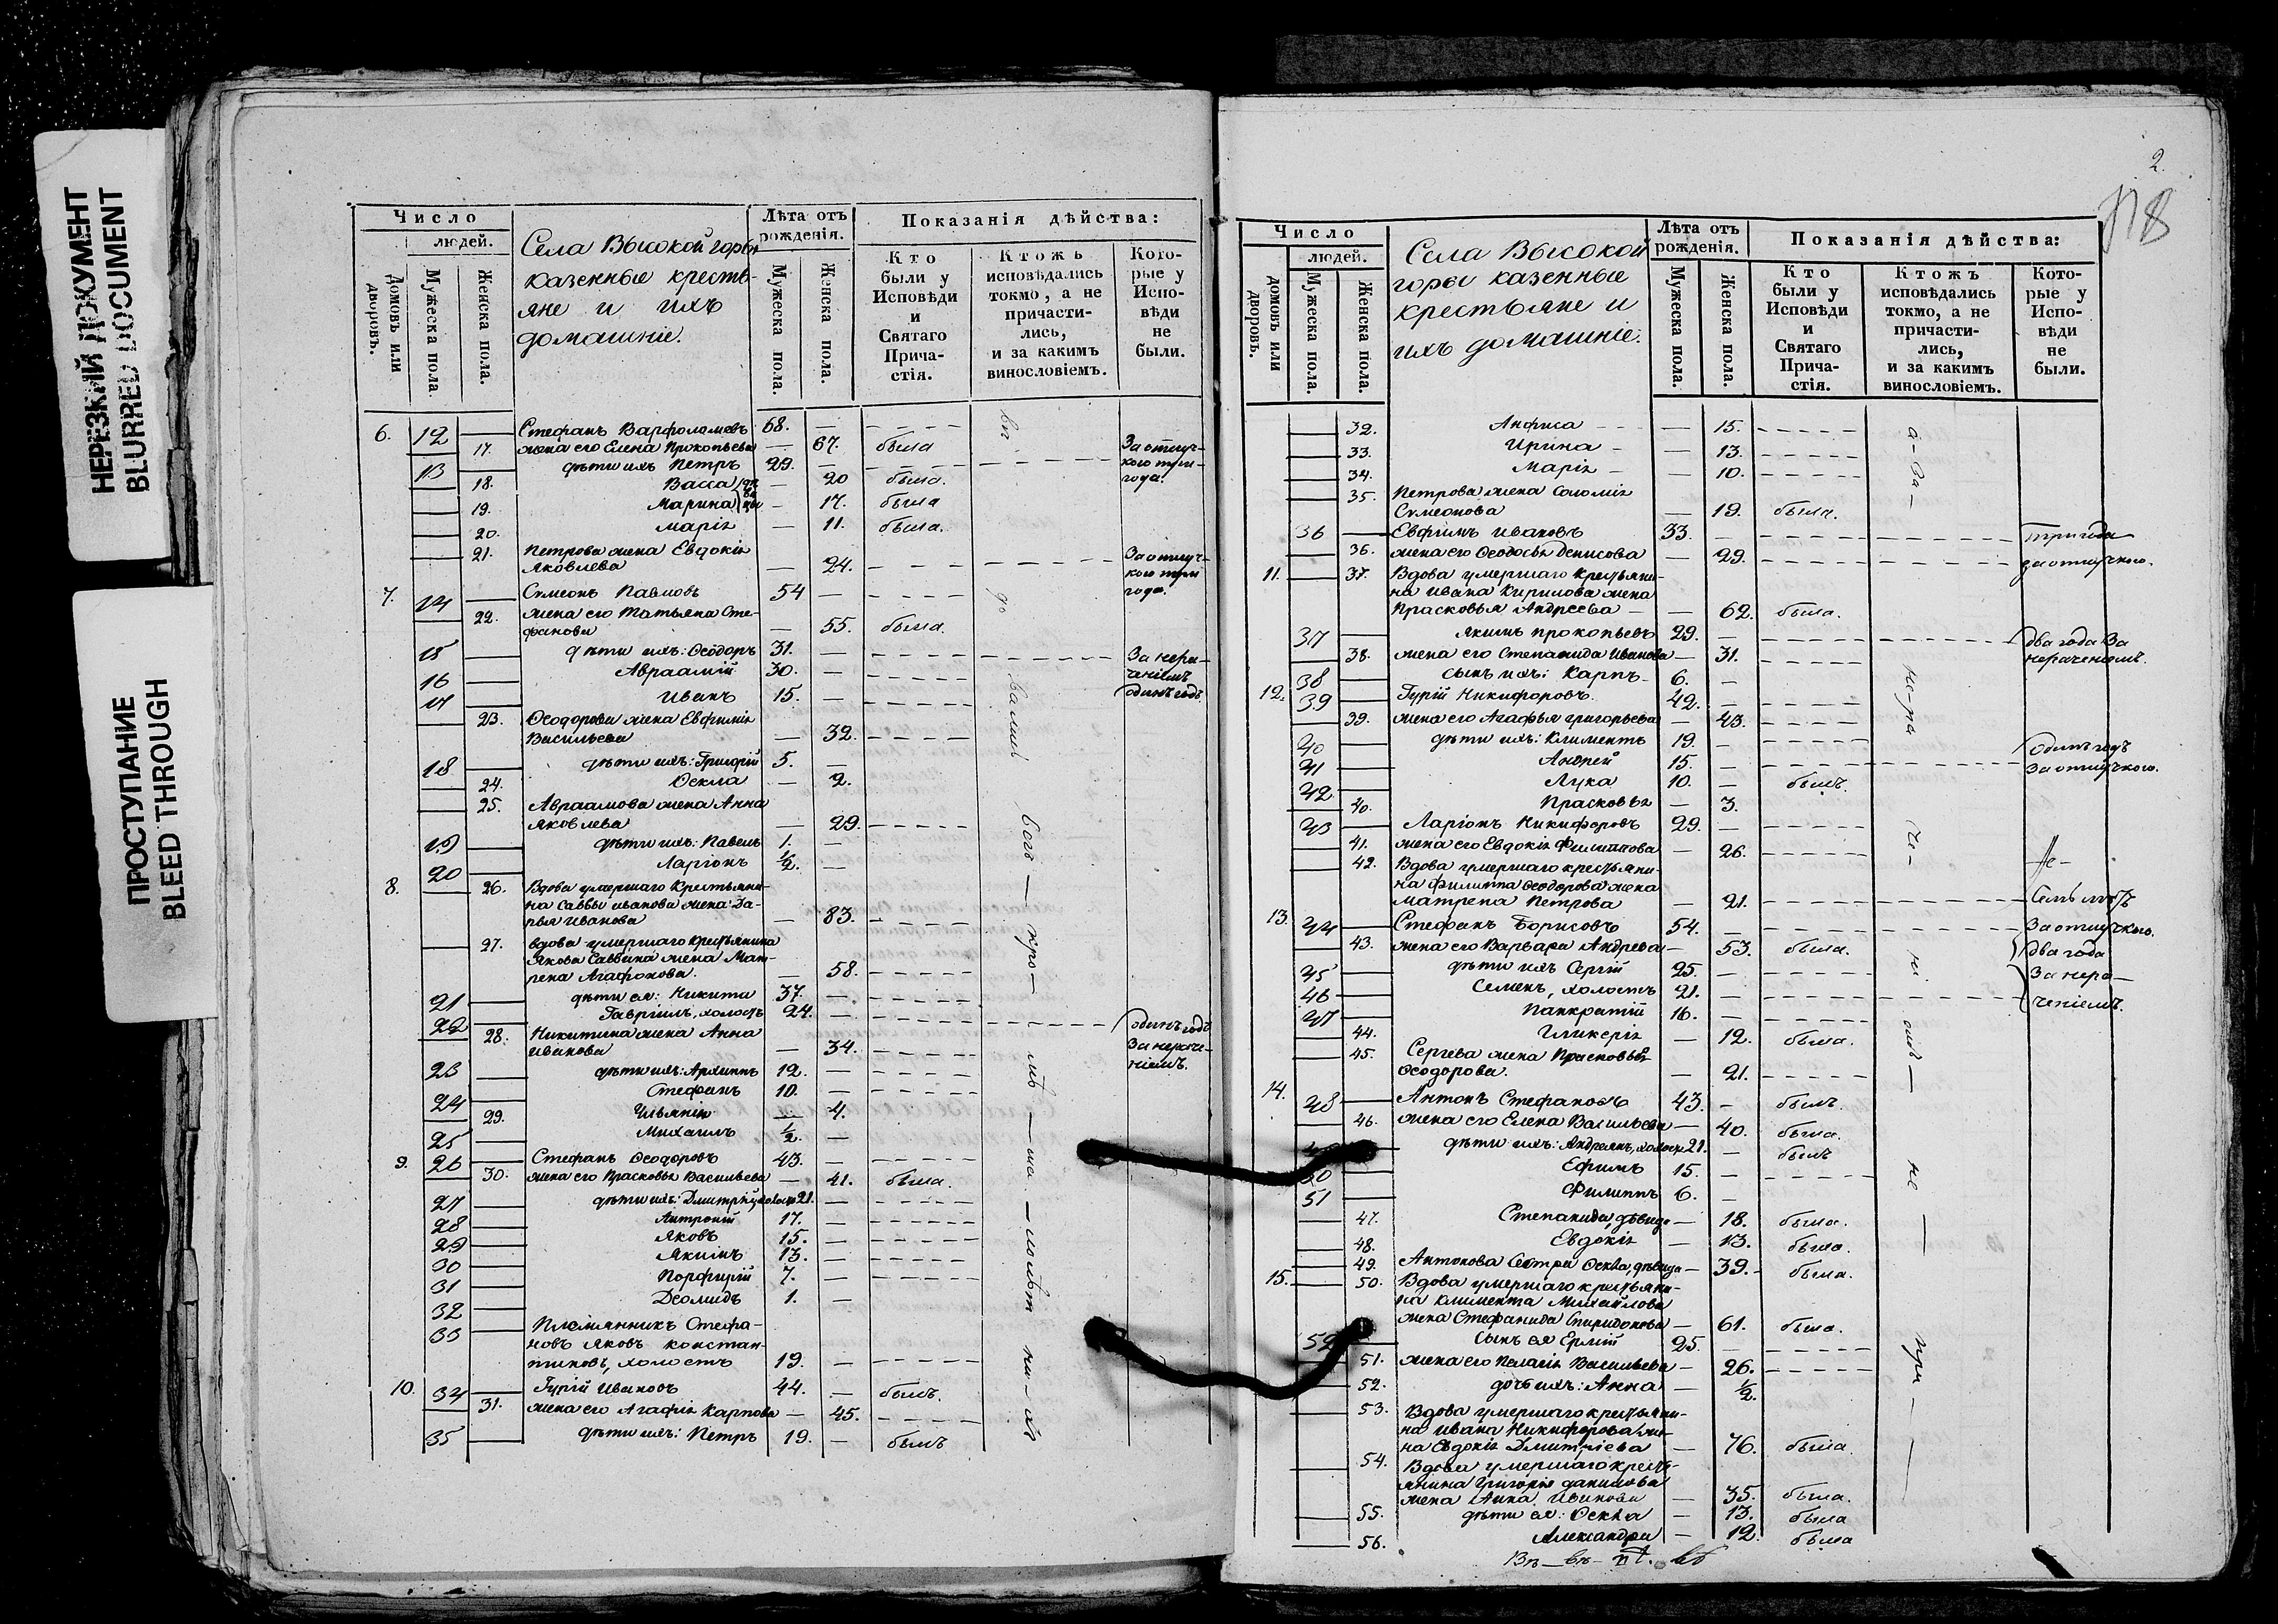 НЕРЕЗКИЙ ДОКУМЕНТ
BLURRED DOCUMENT
ПРОСТУПАНИЕ
BLEED THROUGH
Число
людей.
Домовъ или дворовъ.
Мужеска пола
Женска пола.
Села Высокой горы
казенные кресть-
яне и ихъ
домашніе.
Лѣта отъ рожденія.
Мужеска пола.
Женска пола.
Показанія дѣйства:
Кто были у Исповѣди и Святаго Прича-стія.
Ктожъ исповѣдались токмо, а не причасти-лись, и за какимъ винословіемъ.
Кото-рые у Испо-вѣди не были.
6. 12 Стефанъ Варфоломѣевъ 68. —
17. жена его Елена Прокопьева — 67. была
За отлуч-
13 дѣти ихъ Петръ 29. —
кою три
18. Васса — 20 была.
года.
19. Марина — 17. была
20. Марія — 11. была.
21. Петрова жена Евдокія
Яковлева — 24.
За отлуч-
кою три
года.
7. 14 Симеонъ Павловъ 54 —
22. жена его Татьяна Сте-
фанова — 55. была.
15 дѣти ихъ: Ѳеодоръ 31. —
За нера-
16 Авраамій 30. —
ченіемъ
17 Иванъ 15. —
одинъ годъ
23. Ѳеодорова жена Евфимія
Васильева — 32.
18 дѣти ихъ: Григорій 5. —
24. Ѳекла — 2.
25. Авраамова жена Анна
Яковлева — 29.
19 дѣти ихъ: Павелъ 1. —
20 Ларіонъ ½. —
8. 26. Вдова умершаго крестьяни-
на Саввы Иванова жена Да-
рья Иванова — 83.
27. вдова умершаго крестьянина
Якова Саввина жена Мат-
рена Агафонова. — 58.
21 дѣти ея: Никита 37. —
22 Гавріилъ, холостъ 24. —
одинъ годъ
28. Никитина жена Анна
Иванова — 34.
За нераче-
ніемъ.
23 дѣти ихъ: Архиппъ 12. —
24 Стефанъ 10. —
29. Ульянія — 4.
25 Михаилъ ½. —
9. 26 Стефанъ Ѳеодоровъ 43. —
30. жена его Прасковья Васильева — 41. была.
27 дѣти ихъ: Дмитрій, холостъ 21. —
28 Антроній 17. —
29 Яковъ 15. —
30 Якимъ 13. —
31 Порфирій 7. —
32 Деомидъ 1. —
33 Племянникъ Стефа-
новъ Яковъ Констан-
тиновъ, холостъ 19. —
10. 34 Гурій Ивановъ 44. — былъ.
31. жена его Агафія Карпова — 45.
35 дѣти ихъ: Петръ 19. — былъ
2.
118
Число
людей.
домовъ или дворовъ.
Мужеска пола.
Женска пола.
Села Высокой
горы казенные
крестьяне и
ихъ домашніе.
Лѣта отъ рожденія.
Мужеска пола.
Женска пола.
Показанія дѣйства:
Кто были у Исповѣди и Святаго Прича-стія.
Ктожъ исповѣдались токмо, а не причасти-лись, и за какимъ винословіемъ.
Кото-рые у Испо-вѣди не были.
32. Анфиса — 15.
33. Ирина — 13.
34. Марія — 10.
35. Петрова жена Соломія
Симеонова — 19. была.
36 Евфимъ Ивановъ 33. —
три года
36. жена его Ѳеодосья Денисова — 29.
за отлучкою.
11. 37. Вдова умершаго крестьяни-
на Ивана Кирилова жена
Прасковья Андреева — 62. была.
37 Якимъ Прокопьевъ 29. —
два года за
38. жена его Степанида Иванова — 31.
нераченіемъ.
38 сынъ ихъ: Карпъ 6. —
12. 39 Гурій Никифоровъ. 42. —
39. жена его Агафья Григорьева — 43.
40 дѣти ихъ: Климентъ 19. —
одинъ годъ
41 Андрей 15. —
За отлучкою.
42 Лука 10. — былъ.
40. Прасковья — 3.
43 Ларіонъ Никифоровъ 29. —
41. жена его Евдокія Филиппова — 26.
42. Вдова умершаго крестьяни-
на Филиппа Ѳеодорова жена
Матрена Петрова — 21.
Семь лѣтъ
13. 44 Стефанъ Борисовъ 54. —
За отлучкою.
43. жена его Варвара Андреева — 53. была.
два года
45 дѣти ихъ Сергій 25. —
За нера-
46 Семенъ, холостъ 21. —
ченіемъ.
47 Панкратій 16. —
44. Гликерія — 12. была.
45. Сергѣева жена Прасковья
Ѳеодорова. — 21.
14. 48 Антонъ Стефановъ 43. — былъ.
46. жена его Елена Васильева — 40. была.
49 дѣти ихъ: Андреянъ, холостъ 21. — былъ
50 Ефимъ 15. —
51 Филиппъ 6. —
47. Степанида, дѣвица — 18. была.
48. Евдокія — 13. была.
49. Антонова Сестра Ѳекла, дѣвица — 39. была.
15. 50. Вдова умершаго крестьяни-
на Климента Михайлова
жена Стефанида Спиридонова — 61. была.
52 Сынъ ея Ермій 25. —
51. жена его Пелагія Васильева — 26.
52. дочь ихъ: Анна — ½.
53. Вдова умершаго крестьяни-
на Ивана Никифорова же-
на Евдокія Дмитріева — 76. была.
54. Вдова умершаго кресть-
янина Григорія Данилова
жена Анна Иванова — 35. была.
55. дѣти ея: Ѳекла — 13. была
56. Александра — 12. была